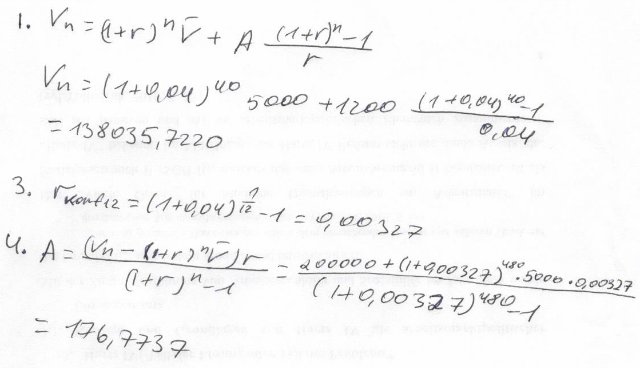 1. Vn = (1+r)^n V̄ + A ((1+r)^n - 1)/r
Vn = (1+0,04)^40 5000 + 1200 ((1+0,04)^40 - 1)/0,04
= 138035,7220
3. r konf12 = (1+0,04)^(1/12) - 1 = 0,00327
4. A = ((Vn - (1+r)^n V̄) r)/((1+r)^n - 1) = (200000 + (1+0,00327)^480 · 5000 · 0,00327)/((1+0,00327)^480 - 1)
= 176,7737